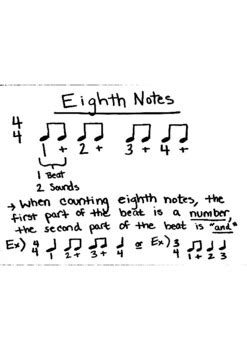 Eighth Notes
4
4
1 + 2 + 3 + 4 +
1 Beat
2 Sounds
→ When counting eighth notes, the
first part of the beat is a number,
the second part of the beat is "and"
Ex) 4/4 1 2+ 3+ 4 or Ex) 3/4 1+ 2 3